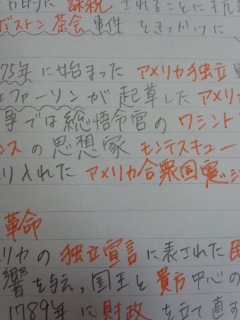 方的に 課税 されることにまた
ボストン茶会事件 をきっかけに
75年に始まった アメリカ独立
ェファーソンが起草した アメリ
事では総悟令官の ワシント
ンスの思想家 モンテスキュー
り入れた アメリカ合衆国憲
革命
リカの 独立宣言に表された民
響を与え、国王と貴方中心の
1789年に財政を立て直す